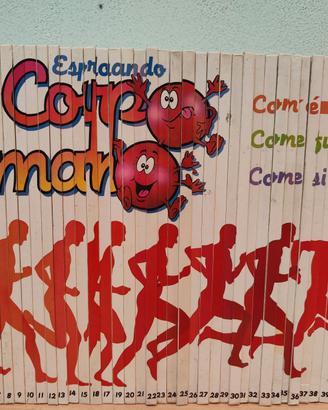 Espraando
Corpo
mano
Com'é
Come fu
Come si
8 9 10 11 12 13 14 15 17 18 19 20 21 22 23 24 25 26 27 28 29 30 31 32 33 34 35 36 37 38 39